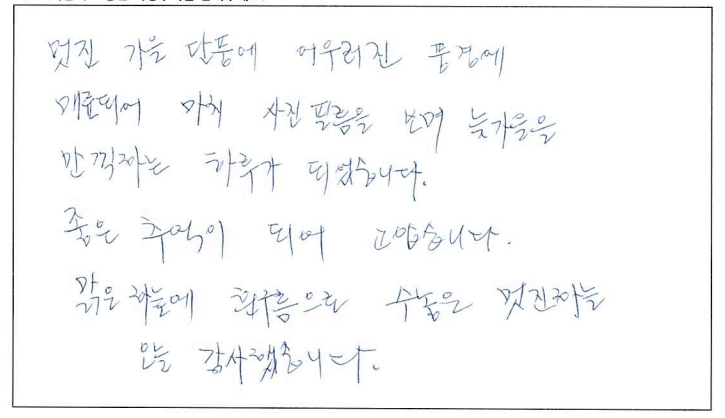 멋진 가을 단풍에 어우러진 풍경에
매료되어 마치 사진 필름을 보며 늦가을을
만끽하는 하루가 되었습니다.
좋은 추억이 되어 고맙습니다.
맑은 하늘에 흰구름으로 수놓은 멋진하늘
오늘 감사했습니다.